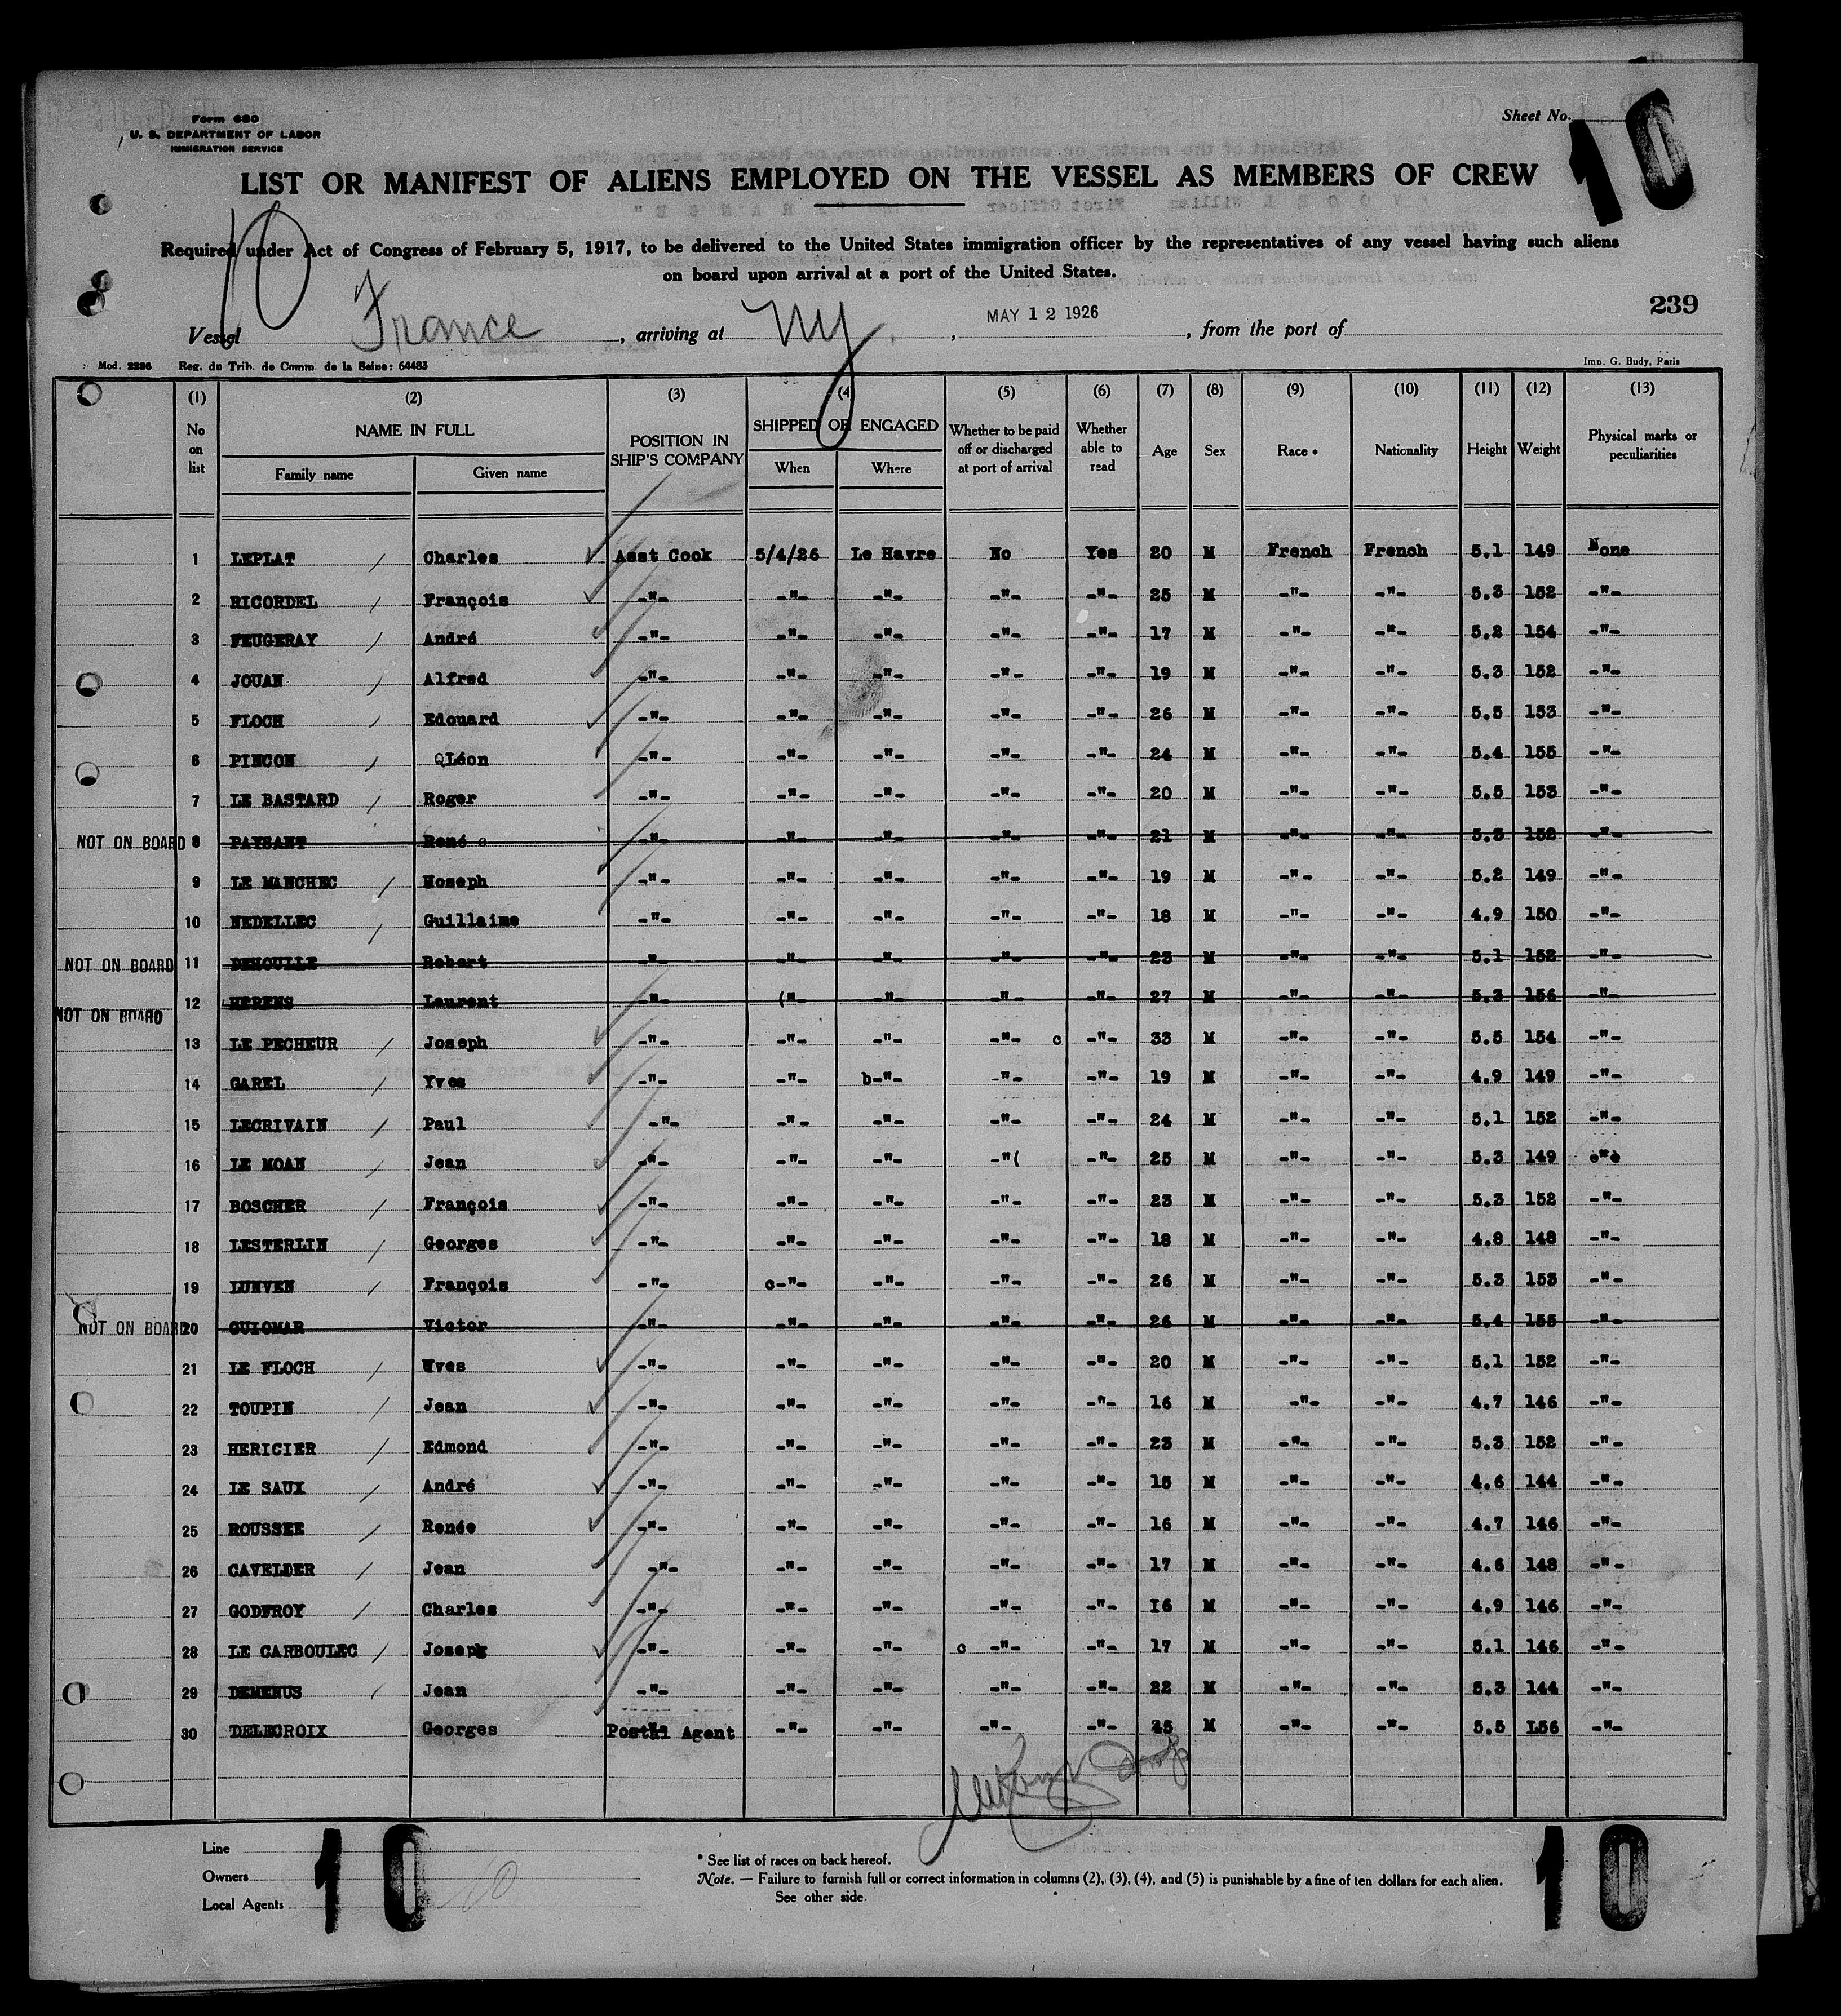 Form 680
U. S. DEPARTMENT OF LABOR
IMMIGRATION SERVICE
Sheet No. 10
LIST OR MANIFEST OF ALIENS EMPLOYED ON THE VESSEL AS MEMBERS OF CREW
10
Required under Act of Congress of February 5, 1917, to be delivered to the United States immigration officer by the representatives of any vessel having such aliens
on board upon arrival at a port of the United States.
239
Vessel France, arriving at NY, MAY 12 1926, from the port of
Mod. 2286 Reg. du Trib. de Comm. de la Seine: 64483 Imp. G. Budy, Paris
(1) (2) (3) (4) (5) (6) (7) (8) (9) (10) (11) (12) (13)
No on list NAME IN FULL Family name Given name POSITION IN SHIP'S COMPANY SHIPPED OR ENGAGED When Where Whether to be paid off or discharged at port of arrival Whether able to read Age Sex Race * Nationality Height Weight Physical marks or peculiarities
1 LEPLAT / Charles Asst Cook 5/4/26 Le Havre No Yes 20 M French French 5.1 149 None
2 RICORDEL / François -"- -"- -"- -"- -"- 25 M -"- -"- 5.3 152 -"-
3 FEUGERAY / André -"- -"- -"- -"- -"- 17 M -"- -"- 5.2 154 -"-
4 JOUAN / Alfred -"- -"- -"- -"- -"- 19 M -"- -"- 5.3 152 -"-
5 FLOCH / Edouard -"- -"- -"- -"- -"- 26 M -"- -"- 5.5 153 -"-
6 PINCON / Léon -"- -"- -"- -"- -"- 24 M -"- -"- 5.4 155 -"-
7 LE BASTARD / Roger -"- -"- -"- -"- -"- 20 M -"- -"- 5.5 153 -"-
NOT ON BOARD 8 PAYSANT René -"- -"- -"- -"- -"- 21 M -"- -"- 5.3 152 -"-
9 LE MANCHEC / Hoseph -"- -"- -"- -"- -"- 19 M -"- -"- 5.2 149 -"-
10 NEDELLEC / Guillaime -"- -"- -"- -"- -"- 18 M -"- -"- 4.9 150 -"-
NOT ON BOARD 11 Robert -"- -"- -"- -"- -"- 23 M -"- -"- 5.1 152 -"-
NOT ON BOARD 12 HERENS Laurent -"- ("- -"- -"- -"- 27 M -"- -"- 5.3 156 -"-
13 LE PECHEUR / Joseph -"- -"- -"- -"- c -"- 33 M -"- -"- 5.5 154 -"-
14 GAREL / Yves -"- -"- b-"- -"- -"- 19 M -"- -"- 4.9 149 -"-
15 LECRIVAIN / Paul -"- -"- -"- -"- -"- 24 M -"- -"- 5.1 152 -"-
16 LE MOAN / Jean -"- -"- -"- -"( -"- 25 M -"- -"- 5.3 149 -"-
17 BOSCHER / François -"- -"- -"- -"- -"- 23 M -"- -"- 5.3 152 -"-
18 LESTERLIN / Georges -"- -"- -"- -"- -"- 18 M -"- -"- 4.8 148 -"-
19 LUNVEN / François -"- c-"- -"- -"- -"- 26 M -"- -"- 5.3 153 -"-
NOT ON BOARD 20 GUIOMAR Victor -"- -"- -"- -"- -"- 26 M -"- -"- 5.4 155 -"-
21 LE FLOCH / Yves -"- -"- -"- -"- -"- 20 M -"- -"- 5.1 152 -"-
22 TOUPIN / Jean -"- -"- -"- -"- -"- 16 M -"- -"- 4.7 146 -"-
23 HERICIER / Edmond -"- -"- -"- -"- -"- 23 M -"- -"- 5.3 152 -"-
24 LE SAUX / André -"- -"- -"- -"- -"- 15 M -"- -"- 4.6 144 -"-
25 ROUSSEE / Renée -"- -"- -"- -"- -"- 16 M -"- -"- 4.7 146 -"-
26 CAVELDER / Jean -"- -"- -"- -"- -"- 17 M -"- -"- 4.6 148 -"-
27 GODFROY / Charles -"- -"- -"- -"- -"- I6 M -"- -"- 4.9 146 -"-
28 LE CARBOULEC / Joseph -"- -"- -"- c -"- -"- 17 M -"- -"- 5.1 146 -"-
29 DEMENUS / Jean -"- -"- -"- -"- -"- 22 M -"- -"- 5.3 144 -"-
30 DELECROIX Georges Postal Agent -"- -"- -"- -"- 25 M -"- -"- 5.5 I56 -"-
Line
Owners
Local Agents
10
10
* See list of races on back hereof.
Note. — Failure to furnish full or correct information in columns (2), (3), (4), and (5) is punishable by a fine of ten dollars for each alien.
See other side.
10